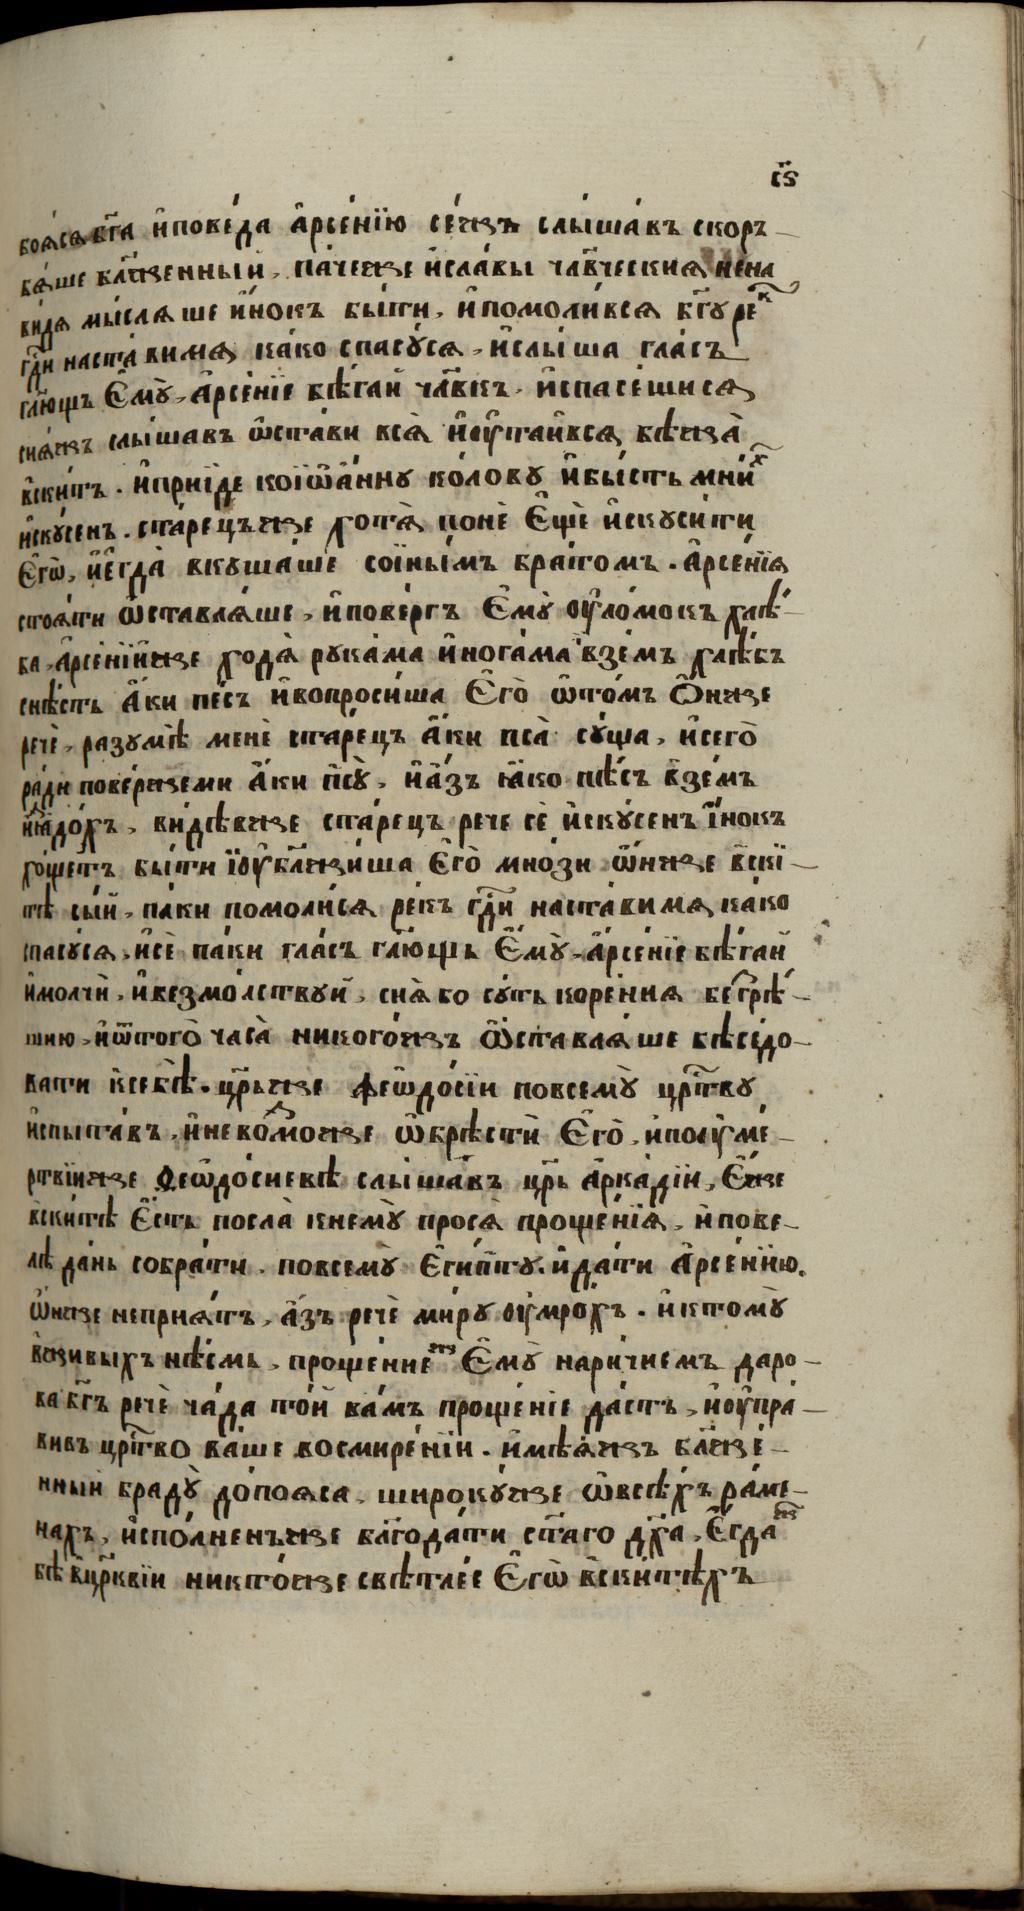 ѕ҃і
боѧ́сѧ бг҃а и҆ пове́да а҆рсе́нїю се́ жъ слы́шавъ скор-
бѧ́ше бл҃же́нный, па́че же и҆ сла́вы чл҃вческиѧ нена
ви́дѧ мы́слѧше и҆́нокъ бы́ти, и҆ помоли́всѧ бг҃у ре́к
гд҃и наста́ви мѧ ка́ко спасу́сѧ, и҆ слы́ша гла́съ
гл҃ющъ є҆мꙋ̀, а҆рсе́нїе бѣ́гай чл҃вкъ, и҆ спасе́шисѧ
сиѧ́ жъ слы́шавъ ѡ҆ста́ви всѧ̀ и҆ ᲂу҆таи́всѧ бѣжа̀
в ски́тъ. и҆ прїи́де ко і҆ѡа́нну ко́лову и҆ бы́сть мни́х
и҆ску́сен. ста́рецъ же хотѧ̀ понѐ є҆щѐ и҆скуси́ти
є҆гѡ̀, и҆ є҆гда̀ вкуша́ше со и҆ны́мъ бра́томъ. а҆рсе́нїѧ
стоѧ́ти ѡ҆ставлѧ́ше, и҆ пове́ргъ є҆мꙋ̀ ᲂу҆ло́мокъ хлѣ́-
ба, а҆рсе́нїй же ходѧ̀ рука́ма и҆ нога́ма взе́мъ хлѣ́бъ
снѣ́сть а҆́ки пе́съ и҆ вопроси́ша є҆го̀ ѡ҆ то́мъ ѻ҆́н же
речѐ, разумѣ̀ менѐ ста́рецъ а҆́ки пса̀ су́ща, и҆ сего̀
ра́ди пове́рже ми а҆́ки псꙋ̀, и҆ а҆́зъ ꙗ҆́ко пе́съ взе́мъ
и҆ ꙗ҆до́хъ, ви́дѣв же ста́рецъ рече сѐ и҆ску́сенъ і҆́нокъ
хо́щетъ бы́ти і҆ ᲂу҆бл҃жи́ша є҆го̀ мно́зи ѡ҆́н же в ски́-
тѣ сы́й, па́ки помоли́сѧ ре́къ гд҃и наста́ви мѧ ка́ко
спасу́сѧ, и҆ сѐ па́ки гла́съ гл҃ющъ є҆мꙋ̀, а҆рсе́нїе бѣ́гай
и҆ молчѝ, и҆ безмо́лствуй, сиѧ̀ бо су́ть коре́ниѧ безгрѣ́-
шию, и҆ ѿ того̀ часа̀ никого́ жъ ѡ҆ставлѧ́ше бѣсе́до-
вати к себѣ̀. цр҃ь же феѡдо́сїи по всемꙋ̀ цр҃тву
и҆спыта́въ, и҆ не возмо́же ѡ҆брѣ́сти є҆го̀, и҆ по ᲂу҆ме́-
ртвїи же феѡдо́сиевѣ слы́шавъ цр҃ь а҆рка́дїи, є҆́же
в ски́тѣ є҆́сть посла̀ к нему̀ просѧ̀ проще́нїѧ, и҆ пове-
лѣ̀ да́нь собра́ти по всемꙋ̀ є҆ги́пту, и҆ да́ти а҆рсе́нїю.
ѡ҆́н же неприѧ́тъ, а҆́зъ речѐ ми́ру ᲂу҆мро́хъ. и҆ к тому̀
в живы́хъ нѣ́смь, проще́ние ж є҆мꙋ̀ нари́чиемъ даро-
ва бг҃ъ речѐ ча́да то́й ва́мъ проще́нїе да́стъ, и҆ ᲂу҆пра́-
вивъ цр҃тво ва́ше во смире́нїи. и҆мѣ́ѧ жъ бл҃же́-
нный браду̀ до по́ѧса, широку́ же ѡ҆ всѣ́хъ ра́ме-
нахъ, и҆спо́лненъ же бл҃года́ти ст҃а́го дх҃а, є҆гда́ ж
бѣ̀ в цр҃квїи никто́ же свѣтле́е є҆гѡ̀ в ски́тѣхъ